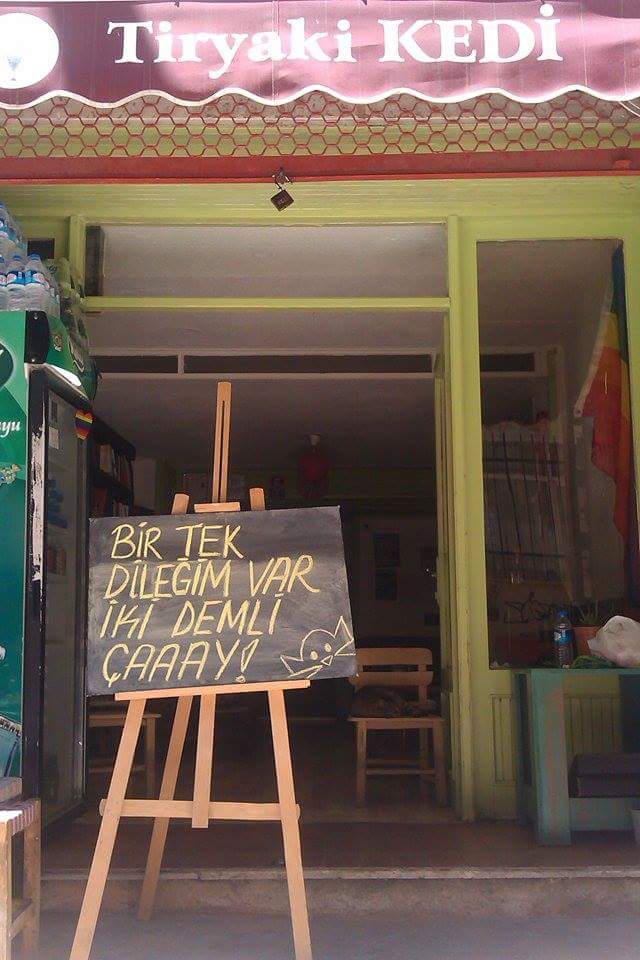 Tiryaki KEDİ
yu
BİR TEK
DİLEĞİM VAR
İKİ DEMLİ
ÇAAAAY!